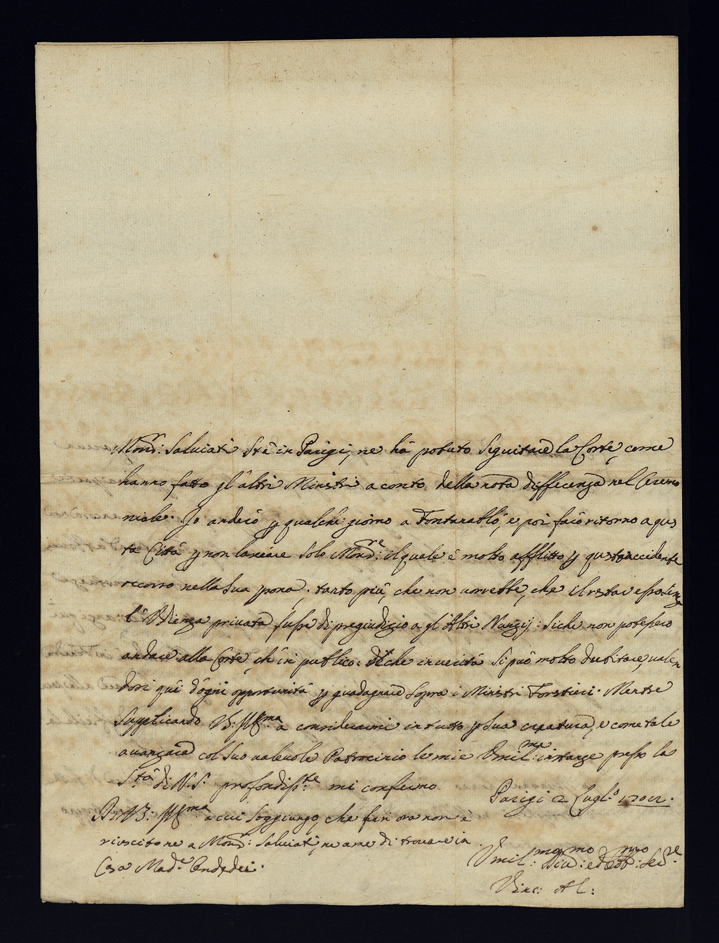 Mons.r: Salviati stà in Parigi, ne hà potuto seguitare la Corte, come
hanno fatto gl'altri Ministri a conto della nota differenza nel Ceremo
niale. Io anderò p qualche giorno a Fontanablò, e poi farò ritorno a ques
ta Città p non lasciare solo Mons.re il quale è molto afflitto p questo accidente
occorso nella sua persona. tanto più, che non vorrebbe, che il restar esposto
l'Udienza privata fusse di pregiudizio a gl'Altri Nunzij: siche non potessero
andare alla Corte, che in publico: Di che in verità si può molto dubitare, valen
dosi quì d'ogni opportunità p guadagnare sopra i Ministri Forstieri. Mentre
supplicando V: Ill.ma a considerarmi in tutto p sua creatura, e come tale
avanzare col suo valevole Patrocinio le mie Umil.me instanze presso la
S.tà di N. S.re profondiss.te mi confermo
Parigi 2 Lugl.o 1712.
D: V: Ill.ma a cui soggiungo, che fin ora non è
riuscito ne a Mons.r: Salviati, ne a me di trovare in
Casa Mad.e
Umil.mo Div.mo ed Obb.mo Se.re
Vinc: